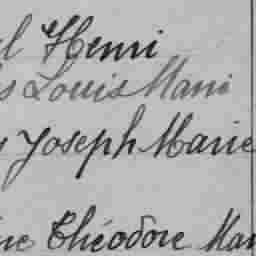 Henri
Louis Mari
Joseph Marie
Théodore Mar